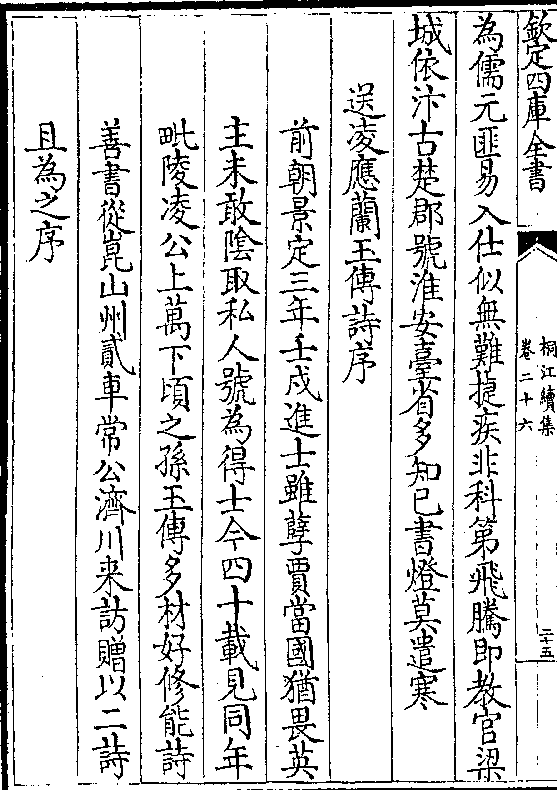 欽定四庫全書
桐江續集
卷二十六
二十五
為儒元匪易入仕似無難捷疾非科第飛騰即教官梁
城依汴古楚郡號淮安臺省多知已書燈莫遣寒
送凌應蘭玉傳詩序
前朝景定三年壬戍進士雖孽賈當國猶畏英
主未敢陰取私人號為得士今四十載見同年
毗陵凌公上萬下頃之孫玉傳多材好修能詩
善書從崑山州貳車常公濟川来訪贈以二詩
且為之序